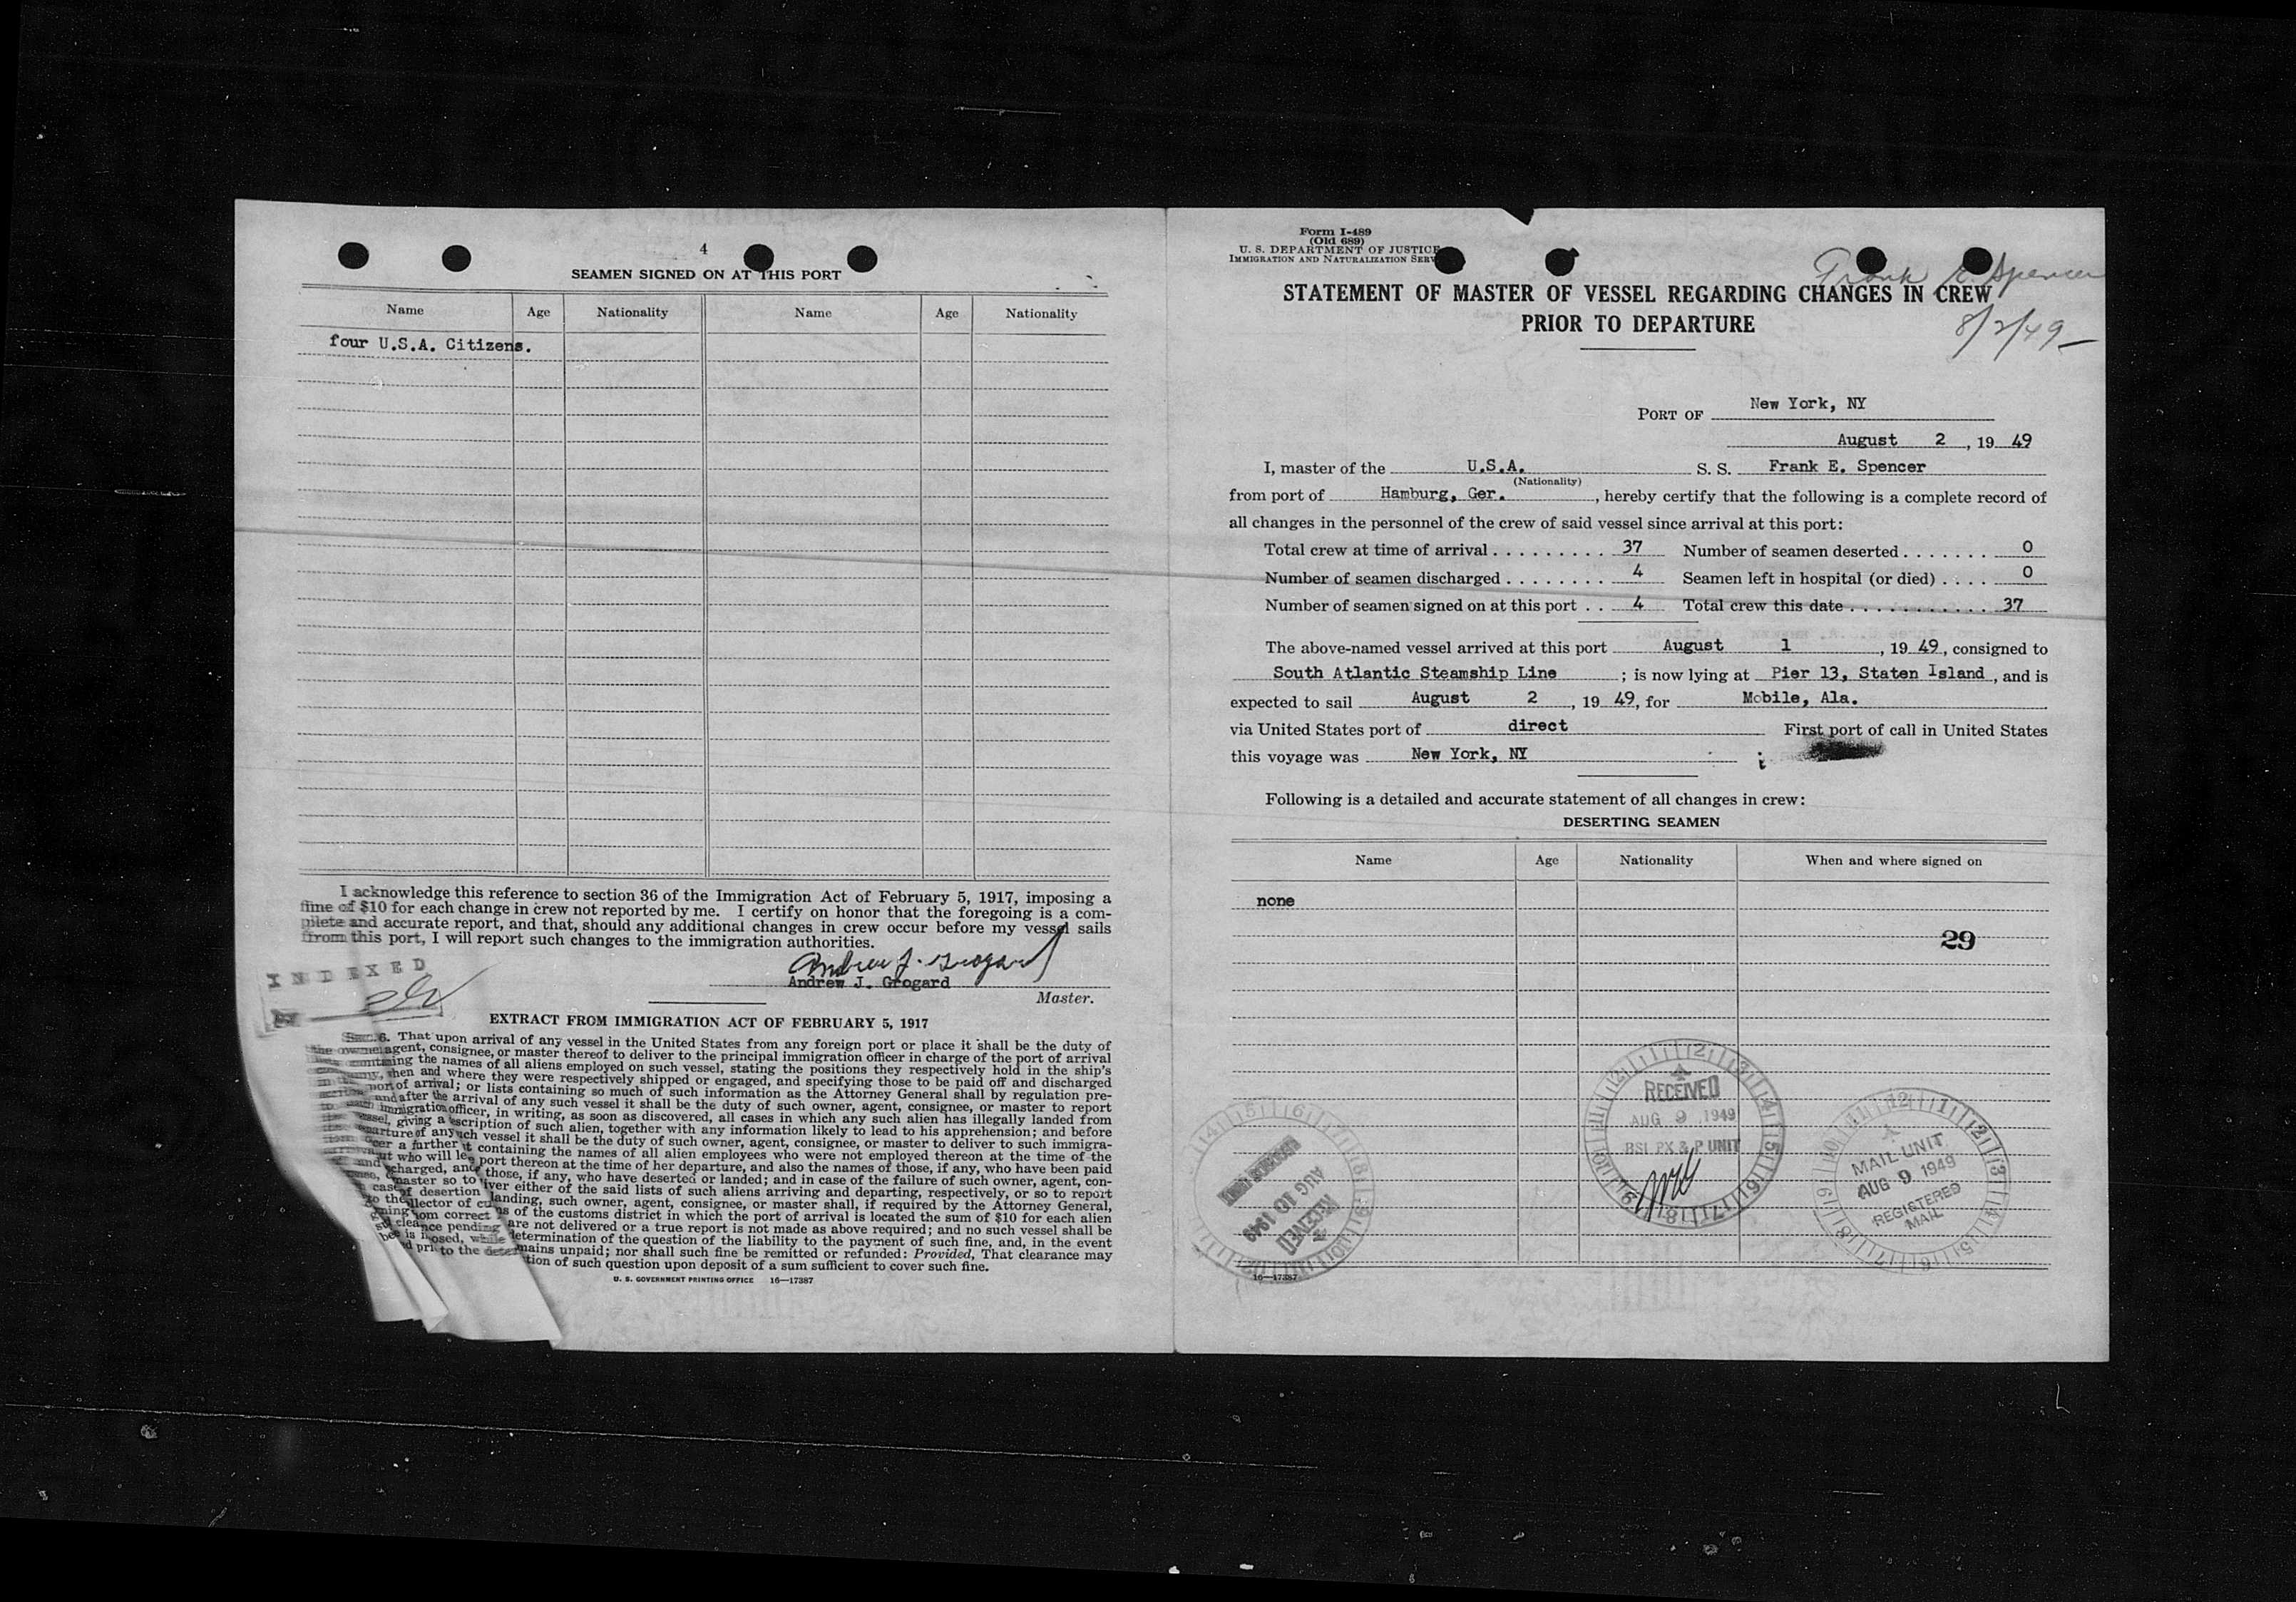 4
SEAMEN SIGNED ON AT THIS PORT
Name Age Nationality Name Age Nationality
four U.S.A. Citizens.
I acknowledge this reference to section 36 of the Immigration Act of February 5, 1917, imposing a
fine of $10 for each change in crew not reported by me. I certify on honor that the foregoing is a com-
plete and accurate report, and that, should any additional changes in crew occur before my vessel sails
from this port, I will report such changes to the immigration authorities.
INDEXED
BY
Andrew J. Grogard
Andrew J. Grogard
Master.
EXTRACT FROM IMMIGRATION ACT OF FEBRUARY 5, 1917
6. That upon arrival of any vessel in the United States from any foreign port or place it shall be the duty of
agent, consignee, or master thereof to deliver to the principal immigration officer in charge of the port of arrival
containing the names of all aliens employed on such vessel, stating the positions they respectively hold in the ship's
when and where they were respectively shipped or engaged, and specifying those to be paid off and discharged
port of arrival; or lists containing so much of such information as the Attorney General shall by regulation pre-
and after the arrival of any such vessel it shall be the duty of such owner, agent, consignee, or master to report
immigration officer, in writing, as soon as discovered, all cases in which any such alien has illegally landed from
giving a scription of such alien, together with any information likely to lead to his apprehension; and before
vessel it shall be the duty of such owner, agent, consignee, or master to deliver to such immigra-
a further containing the names of all alien employees who were not employed thereon at the time of the
who will port thereon at the time of her departure, and also the names of those, if any, who have been paid
charged, and those, if any, who have deserted or landed; and in case of the failure of such owner, agent, con-
master so to iver either of the said lists of such aliens arriving and departing, respectively, or so to report
case of desertion landing, such owner, agent, consignee, or master shall, if required by the Attorney General,
to the llector of of the customs district in which the port of arrival is located the sum of $10 for each alien
correct are not delivered or a true report is not made as above required; and no such vessel shall be
pending determination of the question of the liability to the payment of such fine, and, in the event
mains unpaid; nor shall such fine be remitted or refunded: Provided, That clearance may
tion of such question upon deposit of a sum sufficient to cover such fine.
U. S. GOVERNMENT PRINTING OFFICE 16—17387
Form I-489
(Old 689)
U. S. DEPARTMENT OF JUSTICE
IMMIGRATION AND NATURALIZATION SERV
Frank E. Spencer
8/2/49
STATEMENT OF MASTER OF VESSEL REGARDING CHANGES IN CREW
PRIOR TO DEPARTURE
PORT OF New York, NY
August 2, 19 49
I, master of the U.S.A. S. S. Frank E. Spencer
(Nationality)
from port of Hamburg, Ger., hereby certify that the following is a complete record of
all changes in the personnel of the crew of said vessel since arrival at this port:
Total crew at time of arrival . . . . . . . . . . 37 Number of seamen deserted . . . . . . . 0
Number of seamen discharged . . . . . . . . 4 Seamen left in hospital (or died) . . . . 0
Number of seamen signed on at this port . . 4 Total crew this date . . . . . . . . . . . . 37
The above-named vessel arrived at this port August 1, 19 49, consigned to
South Atlantic Steamship Line; is now lying at Pier 13, Staten Island, and is
expected to sail August 2, 19 49, for Mobile, Ala.
via United States port of direct First port of call in United States
this voyage was New York, NY ;
Following is a detailed and accurate statement of all changes in crew:
DESERTING SEAMEN
Name Age Nationality When and where signed on
none
29
RECEIVED
AUG 9 1949
BSI PX & P UNIT
MAIL UNIT
AUG 9 1949
REGISTERED
MAIL
RECEIVED
AUG 10 1949
16—17387